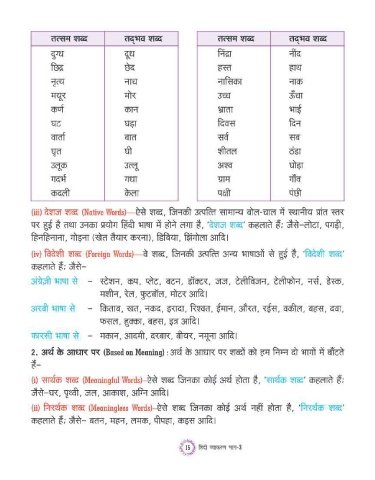 तत्सम शब्द तद्भव शब्द तत्सम शब्द तद्भव शब्द
दुग्ध दूध निंद्रा नींद
छिद्र छेद हस्त हाथ
नृत्य नाच नासिका नाक
मयूर मोर उच्च ऊँचा
कर्ण कान भ्राता भाई
घट घड़ा दिवस दिन
वार्ता बात सर्व सब
घृत घी शीतल ठंडा
उलूक उल्लू अश्व घोड़ा
गदर्भ गधा ग्राम गाँव
कदली केला पक्षी पंछी
(iii) देशज शब्द (Native Words)—ऐसे शब्द, जिनकी उत्पत्ति सामान्य बोल-चाल में स्थानीय प्रांत स्तर
पर हुई है तथा उनका प्रयोग हिंदी भाषा में होने लगा है, 'देशज शब्द' कहलाते हैं; जैसे—लोटा, पगड़ी,
हिनहिनाना, गोड़ना (खेत तैयार करना), डिबिया, झिंगोला आदि।
(iv) विदेशी शब्द (Foreign Words)—वे शब्द, जिनकी उत्पत्ति अन्य भाषाओं से हुई है, 'विदेशी शब्द'
कहलाते हैं; जैसे—
अंग्रेज़ी भाषा से – स्टेशन, कप, प्लेट, बटन, डॉक्टर, जज, टेलीविजन, टेलीफोन, नर्स, डेस्क,
मशीन, रेल, फुटबॉल, मोटर आदि।
अरबी भाषा से – किताब, खत, नकद, इरादा, रिश्वत, ईमान, औरत, रईस, वकील, बहस, दवा,
फसल, हुक्का, बहस, इत्र आदि।
फ़ारसी भाषा से – मकान, आदमी, दरबार, बीयर, नमूना आदि।
2. अर्थ के आधार पर (Based on Meaning) : अर्थ के आधार पर शब्दों को हम निम्न दो भागों में बाँटते
हैं—
(i) सार्थक शब्द (Meaningful Words)—ऐसे शब्द जिनका कोई अर्थ होता है, 'सार्थक शब्द' कहलाते हैं;
जैसे—घर, पृथ्वी, जल, आकाश, अग्नि आदि।
(ii) निरर्थक शब्द (Meaningless Words)—ऐसे शब्द जिनका कोई अर्थ नहीं होता है, 'निरर्थक शब्द'
कहलाते हैं; जैसे— बतन, महन, लमक, पीपहा, कड्स आदि।
15 हिंदी व्याकरण भाग-3